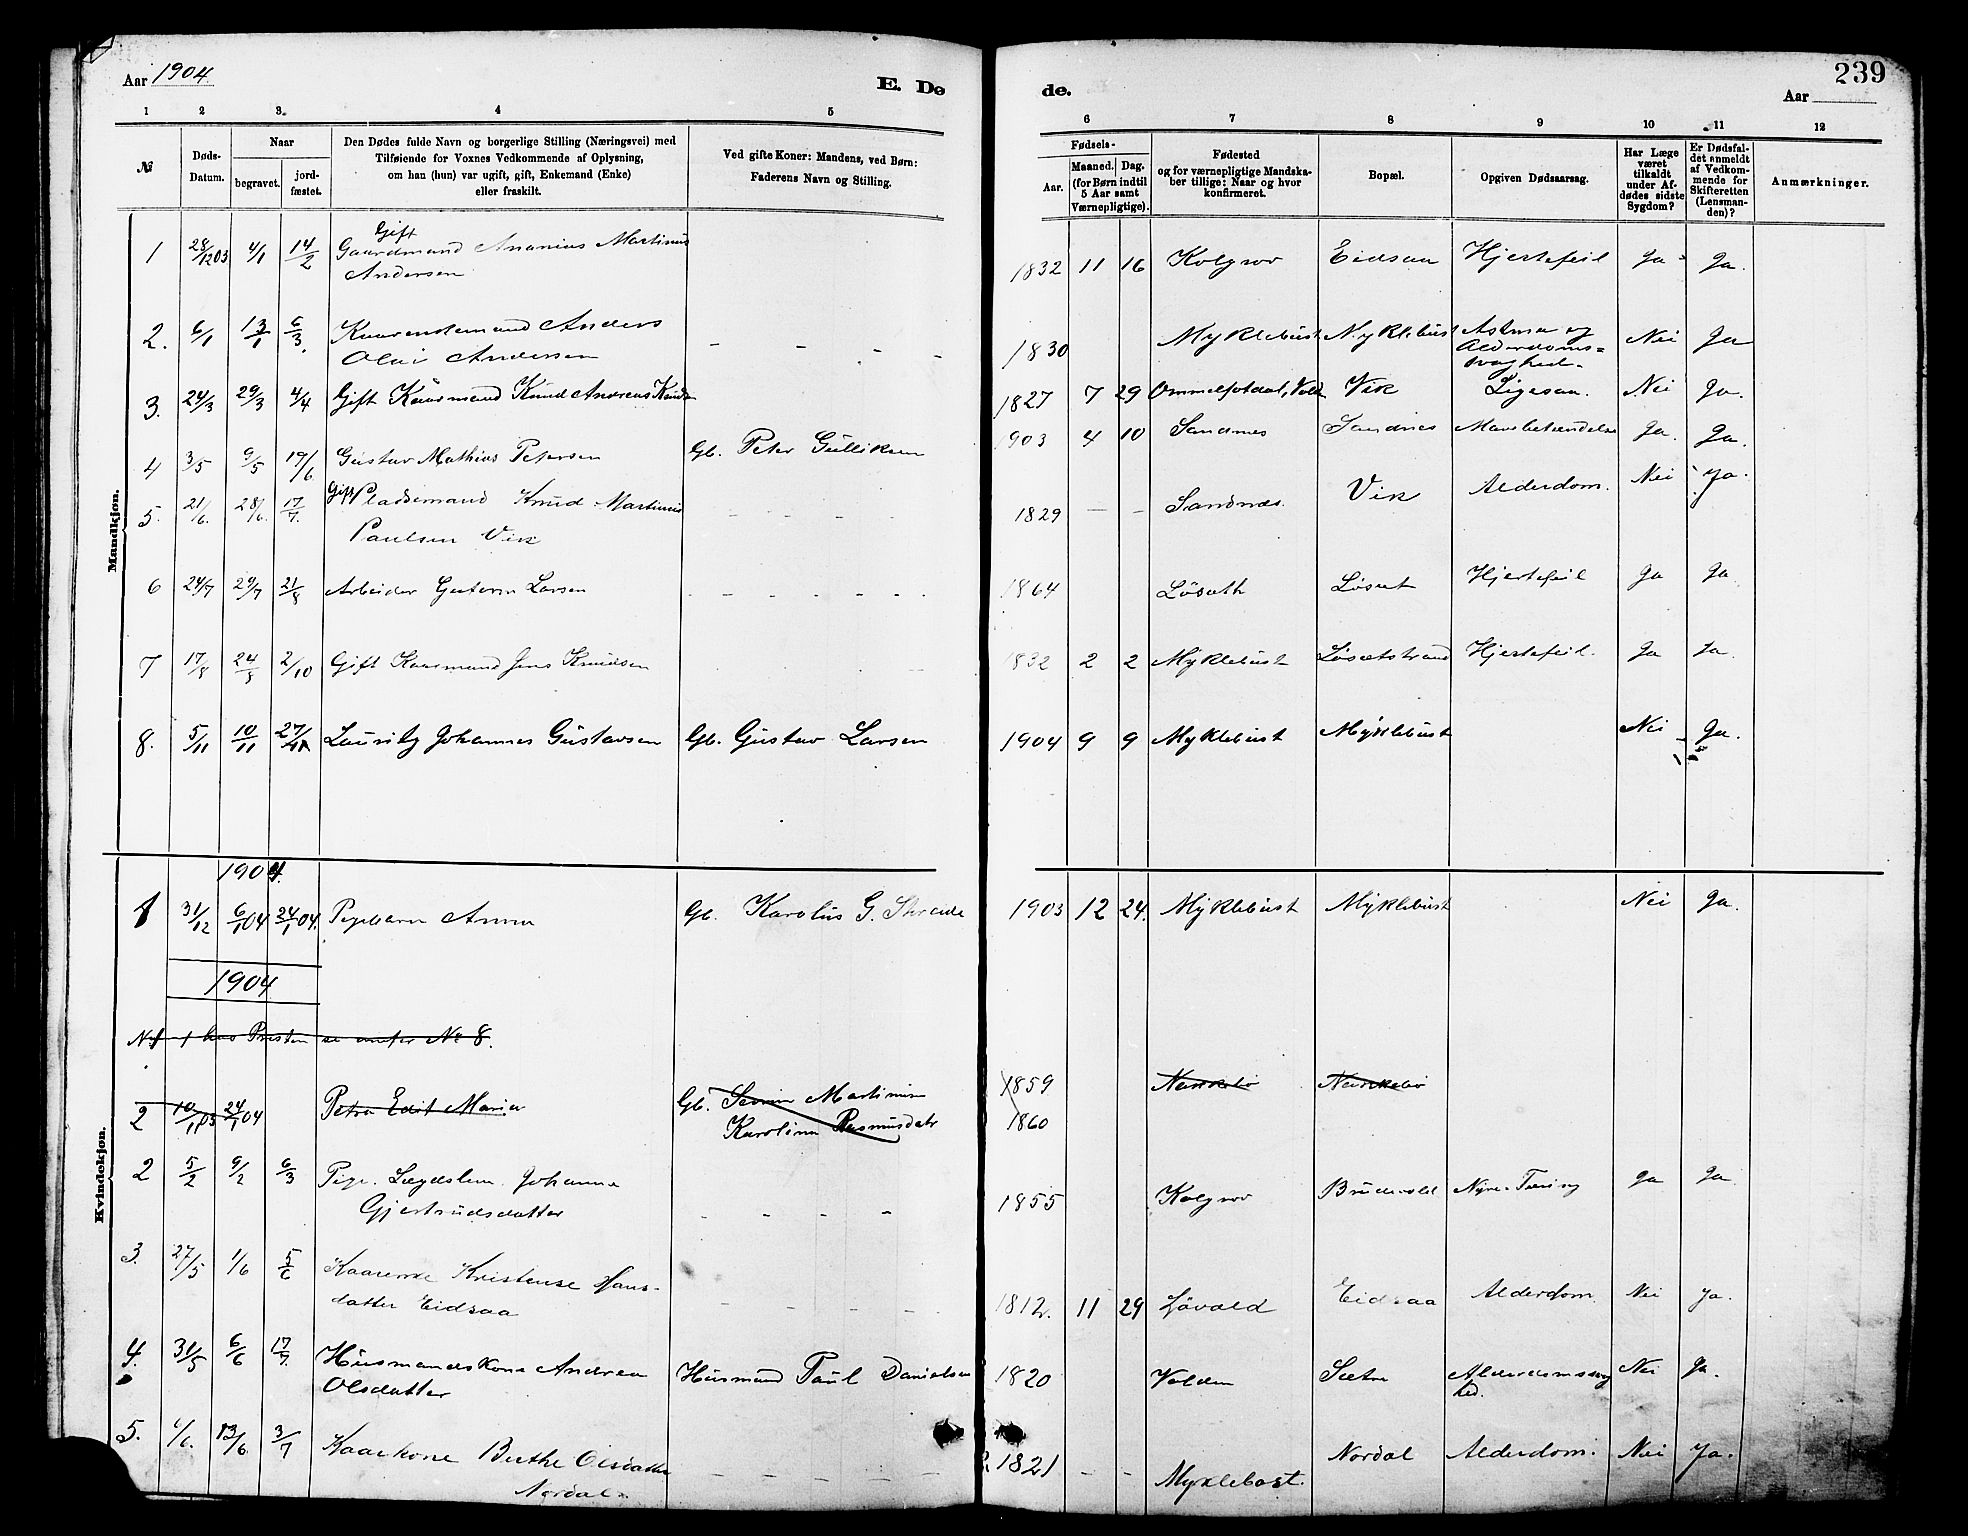 Aar 1904.
E. Dø
de.
239
Aar
1 2 3. 4 5 6 7 8 9 10 11 12
№
Døds-
Datum.
Naar
begravet.
jord-
fæstet.
Den Dødes fulde Navn og borgerlige Stilling (Næringsvei) med
Tilføiende for Voxnes Vedkommende af Oplysning,
om han (hun) var ugift, gift, Enkemand (Enke)
eller fraskilt.
Ved gifte Koner: Mandens, ved Børn:
Faderens Navn og Stilling.
Fødsels-
Aar.
Maaned. Dag.
(for Børn indtil
5 Aar samt
Værnepligtige).
Fødested
og for værnepligtige Mandska-
ber tillige: Naar og hvor
konfirmeret.
Bopæl.
Opgiven Dødsaarsag.
Har Læge
været
tilkaldt
under Af-
dødes sidste
Sygdom?
Er Dødsfal-
det anmeldt
af Vedkom-
mende for
Skifteretten
(Lensman-
den)?
Anmærkninger.
Mandkjøn.
Gift
1 28/12 03 4/1 14/2 Gaardmand Ananias Martinus 1832 11 16 Kolgrov Eidsaa Hjertefeil Ja Ja.
Andersen
2. 6/1 13/1 6/3. Anders 1830 Myklebust Myklebust Astma og Nei Ja
Olai Andersen - - - - Alderdoms=
svaghed.
3. 24/3 29/3 4/4 Gift Kaarmand Knud Andreas Knudsen 1827 7 29 Vik Nei Ja.
4 3/5 9/5 19/6 Gustav Mathias Petersen Gb. Peter Gulliksen 1903 4 10 Sandnes Sandnes Mavebetændelse Ja. Ja.
5. 21/6. 28/6. 17/7. Gift Pladsemand Knud Martinus - - - - 1829 - - Sandnes. Vik Alderdom. Nei Ja.
Paulsen Vik
6 24/7 29/7 21/8 Arbeider Larsen - - - - - - 1864 Løsæth Løset Hjertefeil Ja Ja
7 17/8 24/8 2/10 Gift Kaarmand Jens Knudsen 1832 2 2 Myklebust Løsetstrand Hjertefeil. Ja Ja.
8. 5/11 10/11 27/11 Lauritz Johannes Gustavsen Gb. Gustav Larsen 1904 9 9 Myklebust Myklebust Nei Ja.
Kvindekjøn.
1904.
1 31/12 6/1 04 24/1 04. Pigebarn Anna Gb. Karolus G. 1903 12 24. Myklebust Myklebust Nei Ja.
1904
No 1 har Presten se under No 8.
2 10/11 03 24/1 04 Petra Edit Maria Gb. Martinsen 1859
Karoline Rasmusdatr 1860
2 5/2 9/2 6/3 Pige. Lægdslem. Johanna 1855 Kolgrov Brudevold Nyre-Tæring Ja Ja
Gjertrudsdatter - - - -
3. 27/5 1/6 5/6 Kaarenke Kristense Hans- 1812. 11 29 Løvold Eidsaa Alderdom. Nei Ja.
datter Eidsaa - - - -
4. 31/5 6/6 17/7. Husmandskone Andrea Husmand Paul Danielsen 1820 Volden Sætre Alderdomssvag Nei Ja.
Olsdatter hed.
5. 1/6. 13/6 3/7 Kaarkone Berthe Olsdatter - - - - - 1821 - - Myklebost. Nordal Alderdom. Nei Ja.
Nordal.